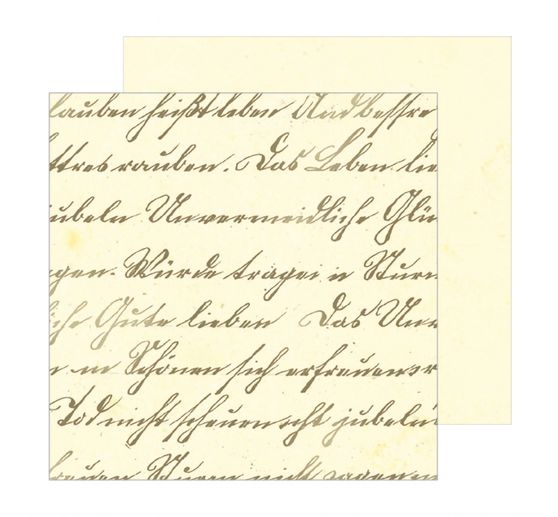 lauben heißt leben Und bessre
ttres rauben. Das Leben lie
ubeln Unvermeidliche Glü
gen. Würde tragen in Sturm
iche Gute lieben Das Unv
n in Schönen sich erfreuen
Tod nicht scheuen cht jubeln
reuen Sturm nicht zagen